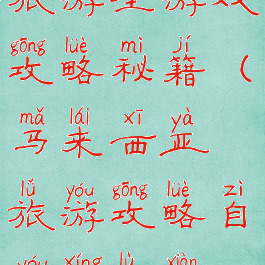 gōng lüè mì jí
攻略秘籍（
mǎ lái xī yà
马来西亚
lǚ yóu gōng lüè zì
旅游攻略自